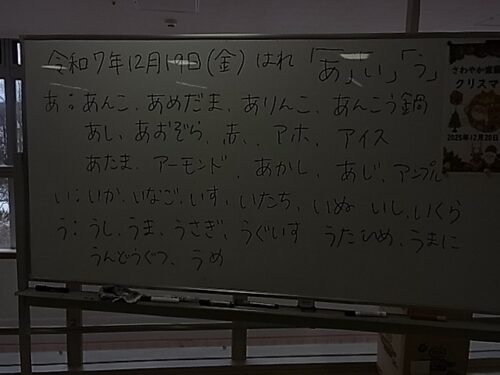 令和7年12月19日(金) はれ 「あ」「い」「う」
あ:あんこ、あめだま、ありんこ、あんこう鍋
あし、あおぞら、赤、アホ、アイス
あたま、アーモンド、あかし、あじ、アンプル
い:いか、いなご、いす、いたち、いぬ いし、いくら
う:うし、うま、うさぎ、うぐいす うたひめ、うまに
うんどうぐつ、うめ
さわやか
クリスマ
2025年12月20日